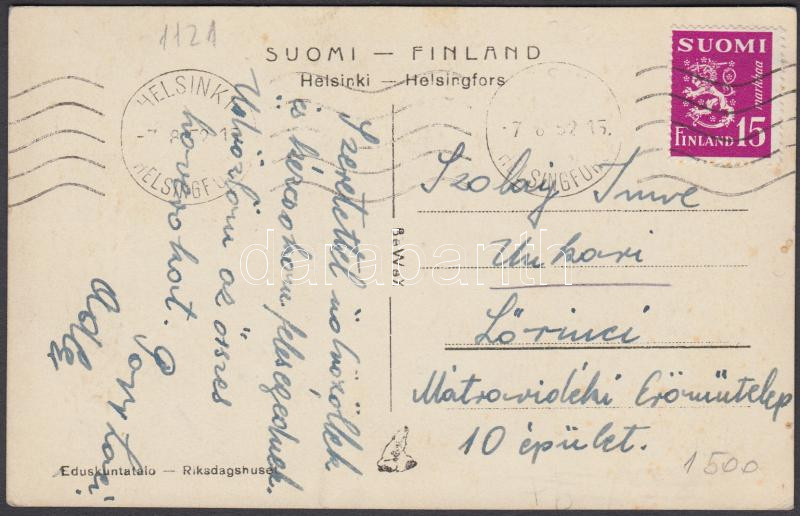 1121
SUOMI — FINLAND
Helsinki — Helsingfors
SUOMI
markkaa
FINLAND 15
HELSINKI
-7.8.52.15
HELSINGFORS
-7.8.52.15.
HELSINGFORS
Szeretettel üdvözöllek
és kézcsókom feleségednek.
Üdvözlöm az összes
Szolay Imre
Unkari
Lőrinci
Mátravidéki Erőműtelep
10 épület.
BeWe
Eduskuntatalo — Riksdagshuset
1500
darabanth